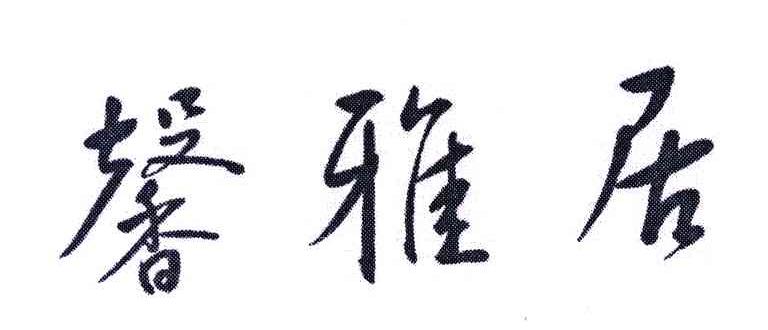 馨雅居